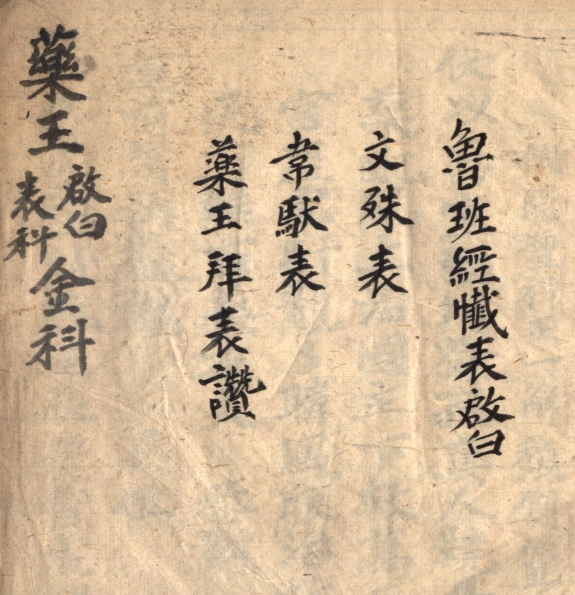 魯班經懺表啟白
文殊表
韋馱表
藥王拜表讚
藥王啟白表科金科